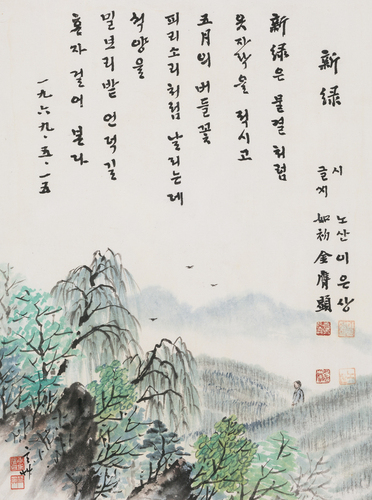 新綠
시 노산 이은상
글씨 如初 金膺顯
新綠은 물결처럼
옷자락을 적시고
五月의 버들꽃
피리소리처럼 날리는데
석양을
밀보리밭 언덕길
혼자 걸어 본다
一九六九·五·一五